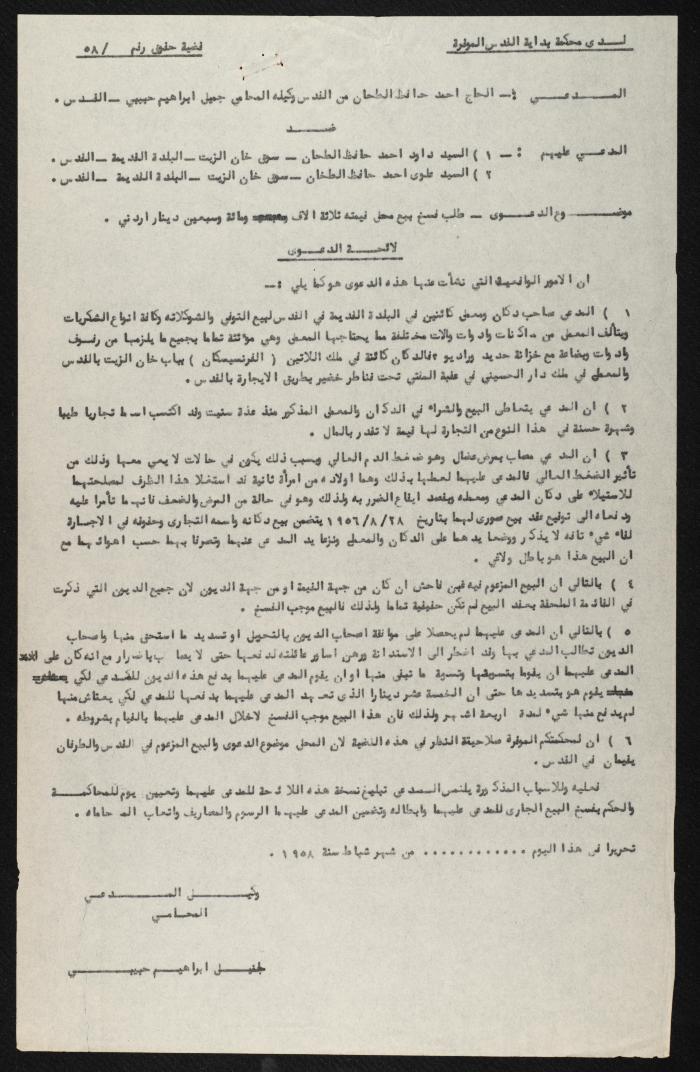 لـــدى محكمة بداية القدس الموقرة
قضية حقوق رقم     / ٥٨
المـــدعـــي :ـ الحاج احمد حافظ الطحان من القدس وكيله المحامي جميل ابراهيم حبيبي ـ القدس .
ضـــد
المدعـي عليهم :ـ ١ ) السيد داود احمد حافظ الطحان ـ سوق خان الزيت ـ البلدة القديمة ـ القدس .
٢ ) السيد علوي احمد حافظ الطحان ـ سوق خان الزيت ـ البلدة القديمة ـ القدس .
موضـــوع الدعـــوى ـ طلب فسخ بيع محل قيمته ثلاثة الاف ومائة وسبعين دينار اردني .
لائحـــة الدعـــوى
ان الامور الواقعية التي نشأت عنها هذه الدعوى هو كما يلي :ـ
١ ) المدعي صاحب دكان ومعمل كائنين في البلدة القديمة في القدس لبيع التوفي والشوكلاته وكافة انواع الشكريات
ويتألف المعمل من ماكنات وادوات والات مختلفة مما يحتاجها المعمل وهي مؤثثة تماما بجميع ما يلزمها من رفسوف
وادوات وبضاعة مع خزانة حديد وراديو فالدكان كائنة في ملك اللاتين ( الفرنسيسكان ) بباب خان الزيت بالقدس
والمعمل في ملك دار الحسيني في عقبة المفتي تحت قناطر خضير بطريق الايجارة بالقدس .
٢ ) ان المدعي يتعاطى البيع والشراء في الدكان والمعمل المذكور منذ عدة سنيت وقد اكتسب اسما تجاريا طيبا
وشهرة حسنة في هذا النوع من التجارة لها قيمة لا تقدر بالمال .
٣ ) ان المدعي مصاب بمرض عضال وهو ضغط الدم العالي وبسبب ذلك يكون في حالات لا يعي معها وذلك من
تأثير الضغط العالي فالمدعى عليهما لعملها بذلك وهما اولاده من امرأة ثانية قد استغلا هذا الظرف لمصلحتهما
للاستيلاء على دكان المدعي ومعمله وبقصد ايقاع الضرر به ولذلك وهو في حالة من المرض والضعف فانهما تأمرا عليه
ودفعاه الى توقيع عقد بيع صوري لهما بتاريخ ١٩٥٦/٨/٢٨ يتضمن بيع دكانه واسمه التجاري وحقوقه في الاجـارة
لقاء شيء تافه لا يذكر ووضعا يدهما على الدكان والمعمل ونزعا يد المدعي عنهما وتصرفا بهما حسب اهوائهما مع
ان البيع هذا هو باطل ولاغي .
٤ ) بالتالي ان البيع المزعوم فيه غبن فاحش ان كان من جهة القيمة او من جهة الديون لان جميع الديون التي ذكرت
في القائمة الملحقة بعقد البيع لم تكن حقيقية تماما ولذلك فالبيع موجب الفسخ .
٥ ) بالتالي ان المدعى عليهما لم يحصلا على موافقة اصحاب الديون بالتحويل او تسديد ما استحق منها واصحاب
الديون تطالب المدعي بها وقد اضطر الى الاستدانة ورهن اساور عائلته لدفعها حتى لا يصاب باضرار مع انه كان على
المدعى عليهما ان يقوما بتسويقها وتسوية ما تبقى منها او ان يقوم المدعى عليهما بدفع هذه الديون للمدعي لكي
يقوم هو بتسديدها حتى ان الخمسة عشر دينارا الذي تعهد المدعى عليهما بدفعها للمدعي لكي يعتاش منها
لم يدفع منها شيء لمدة اربعة اشهر ولذلك فان هذا البيع موجب الفسخ لاخلال المدعى عليهما بالقيام بشروطه .
٦ ) ان لمحكمتكم الموقرة صلاحية النظر في هذه القضية لان المحل موضوع الدعوى والبيع المزعوم في القدس والطرفان
يقيمان في القدس .
فعليه وللاسباب المذكورة يلتمس المدعي تبليغ نسخة هذه اللائحة للمدعى عليهما وتعيين يوم للمحاكمـــة
والحكم بفسخ البيع الجاري للمدعى عليهما وابطاله وتضمين المدعى عليهما الرسوم والمصاريف واتعاب المحاماه .
تحريرا في هذا اليوم ............ من شهر شباط سنة ١٩٥٨ .
وكيـــل المـــدعـــي
المحامـي
جميـــل ابراهيـــم حبيبـــي